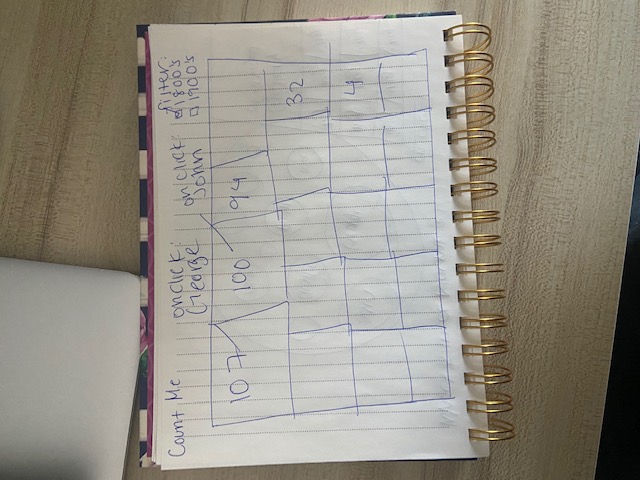 Count Me
onclick:
George
onclick:
John
filter:
1800's
1900's
107
100
94
32
4